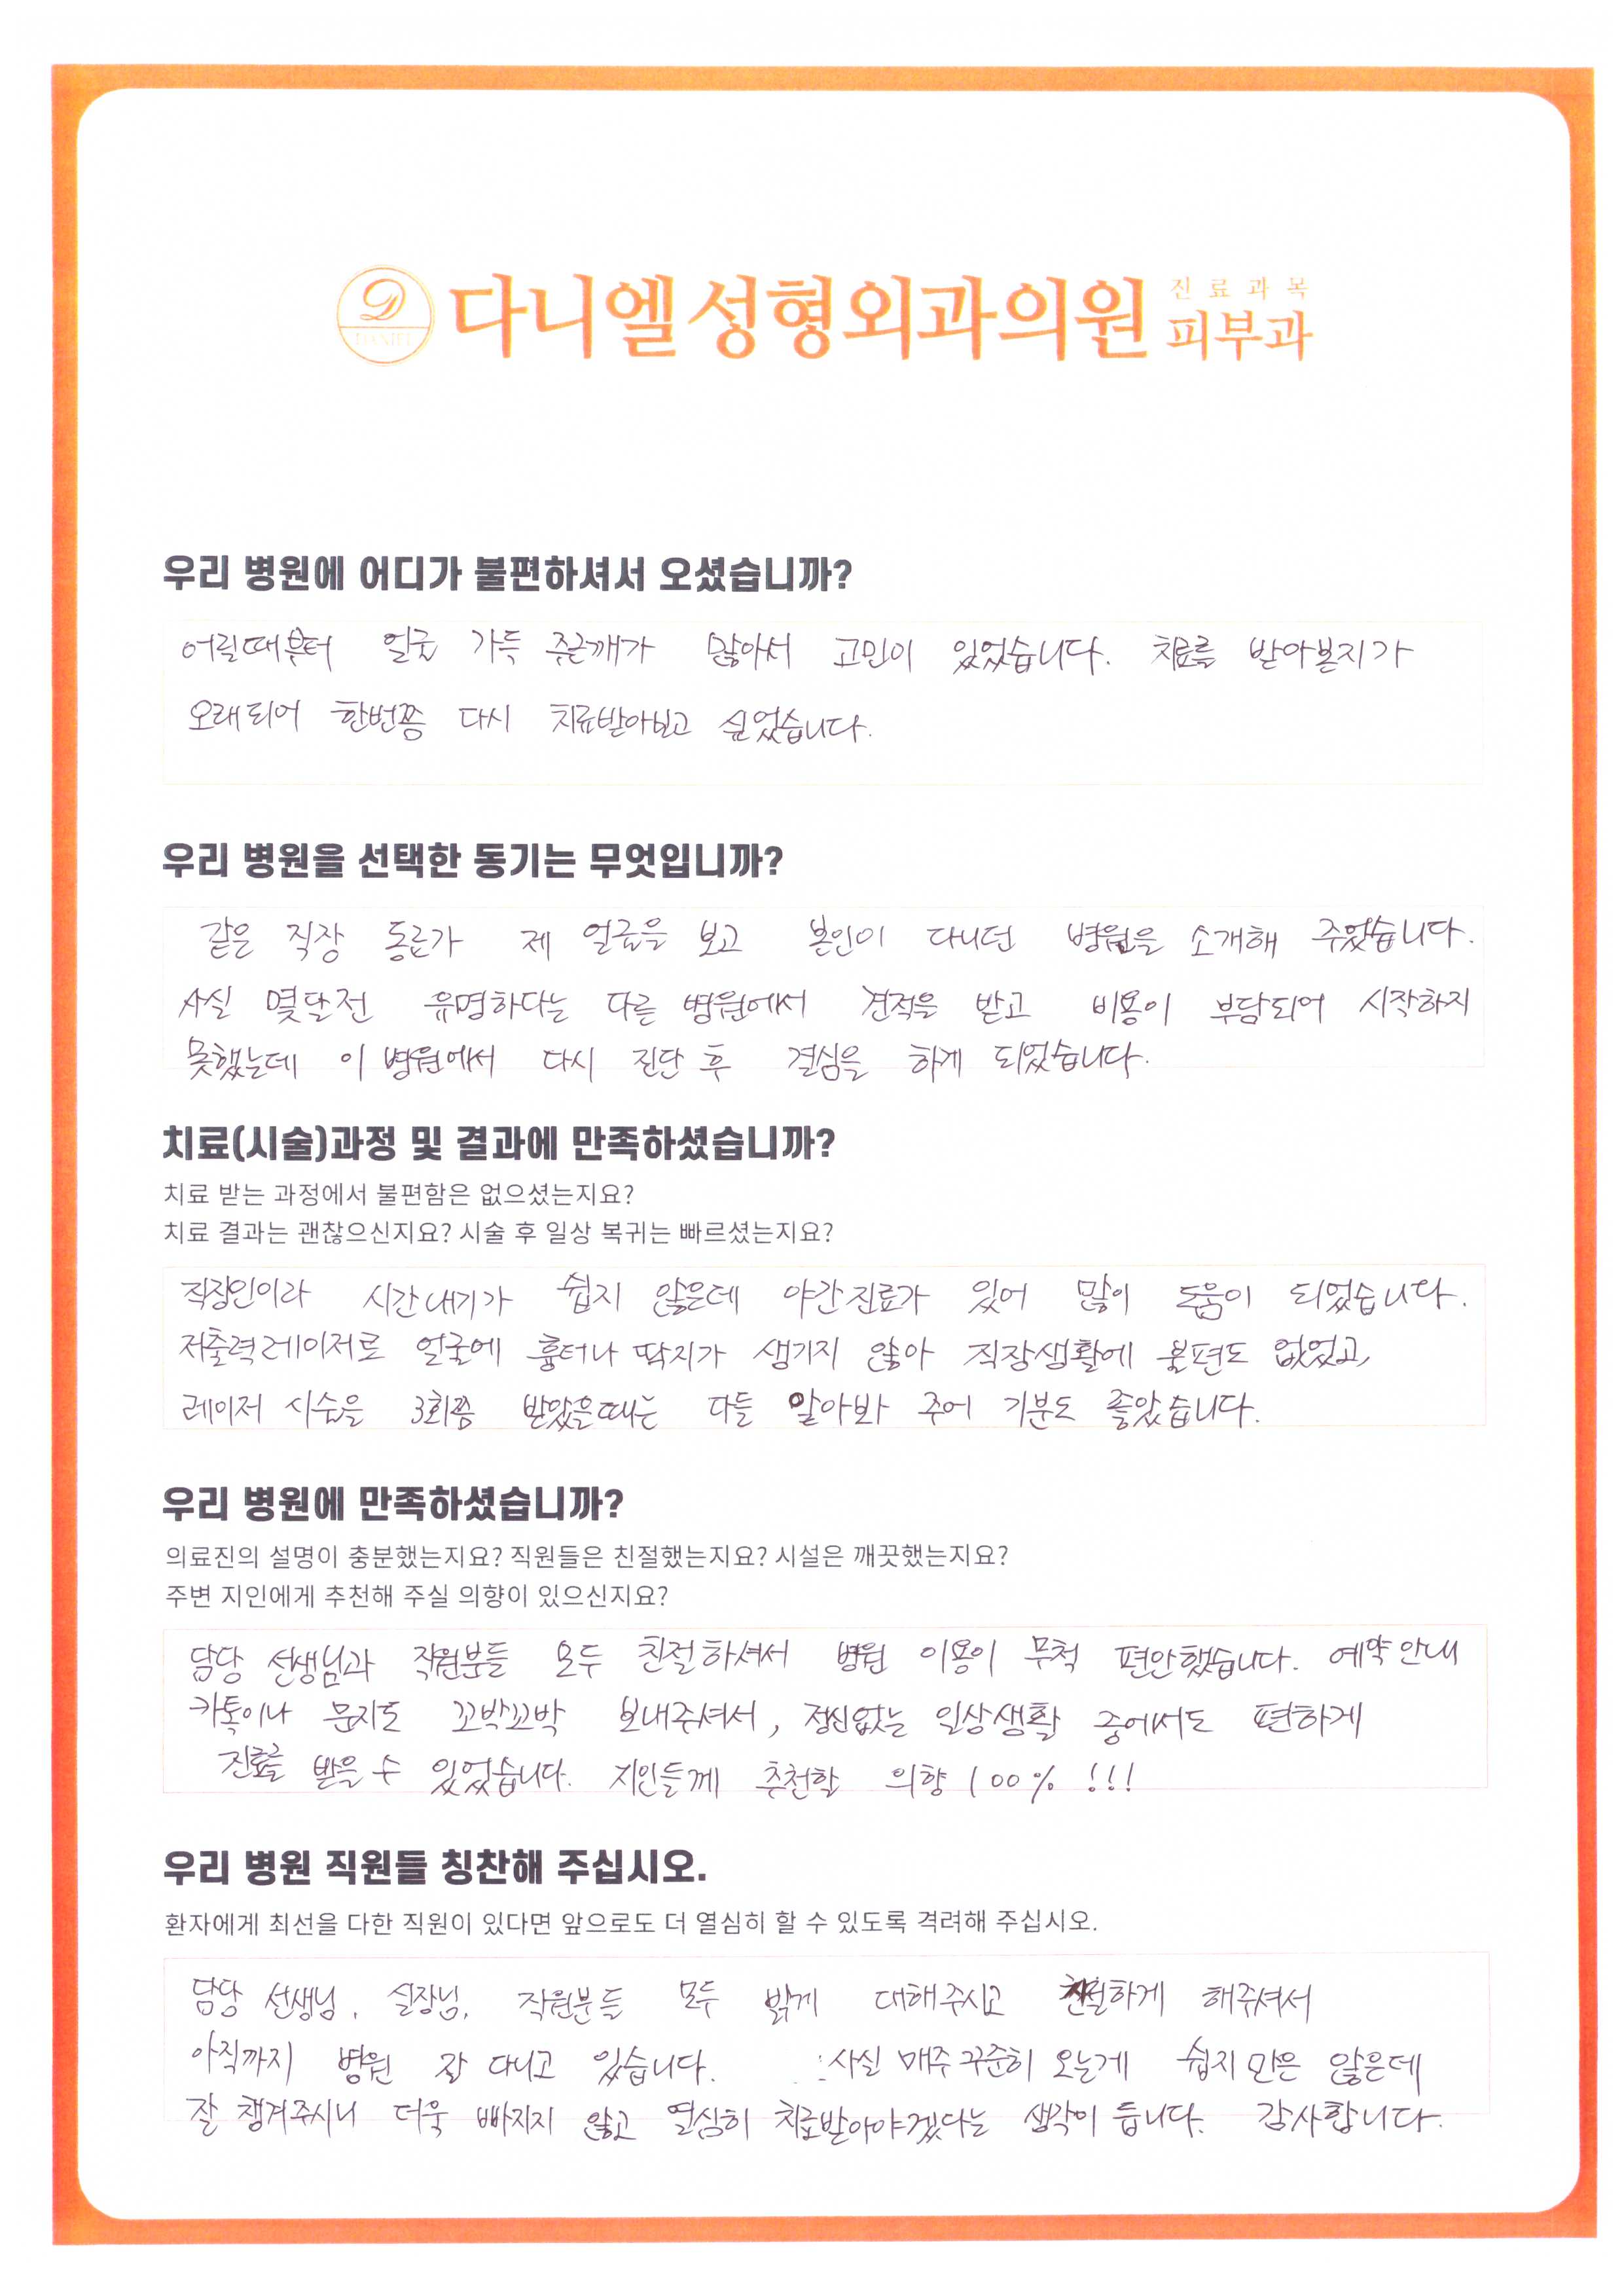 DANIEL
다니엘성형외과의원 진료과목 피부과
우리 병원에 어디가 불편하셔서 오셨습니까?
어릴때부터 얼굴 가득 주근깨가 많아서 고민이 있었습니다. 치료를 받아본지가
오래되어 한번쯤 다시 치료받아보고 싶었습니다.
우리 병원을 선택한 동기는 무엇입니까?
같은 직장 동료가 제 얼굴을 보고 본인이 다니던 병원을 소개해 주었습니다.
사실 몇달전 유명하다는 다른 병원에서 견적을 받고 비용이 부담되어 시작하지
못했는데 이 병원에서 다시 진단 후 결심을 하게 되었습니다.
치료(시술)과정 및 결과에 만족하셨습니까?
치료 받는 과정에서 불편함은 없으셨는지요?
치료 결과는 괜찮으신지요? 시술 후 일상 복귀는 빠르셨는지요?
직장인이라 시간내기가 쉽지 않은데 야간진료가 있어 많이 도움이 되었습니다.
저출력레이저로 얼굴에 흉터나 딱지가 생기지 않아 직장생활에 불편도 없었고,
레이저 시술을 3회쯤 받았을때는 다들 알아봐 주어 기분도 좋았습니다.
우리 병원에 만족하셨습니까?
의료진의 설명이 충분했는지요? 직원들은 친절했는지요? 시설은 깨끗했는지요?
주변 지인에게 추천해 주실 의향이 있으신지요?
담당 선생님과 직원분들 모두 친절하셔서 병원 이용이 무척 편안했습니다. 예약안내
카톡이나 문자도 꼬박꼬박 보내주셔서, 정신없는 일상생활 중에서도 편하게
진료를 받을 수 있었습니다. 지인들께 추천할 의향 100% !!!
우리 병원 직원들 칭찬해 주십시오.
환자에게 최선을 다한 직원이 있다면 앞으로도 더 열심히 할 수 있도록 격려해 주십시오.
담당 선생님, 실장님, 직원분들 모두 밝게 대해주시고 친절하게 해주셔서
아직까지 병원 잘 다니고 있습니다. 사실 매주 꾸준히 오는게 쉽지만은 않은데
잘 챙겨주시니 더욱 빠지지 않고 열심히 치료받아야겠다는 생각이 듭니다. 감사합니다.